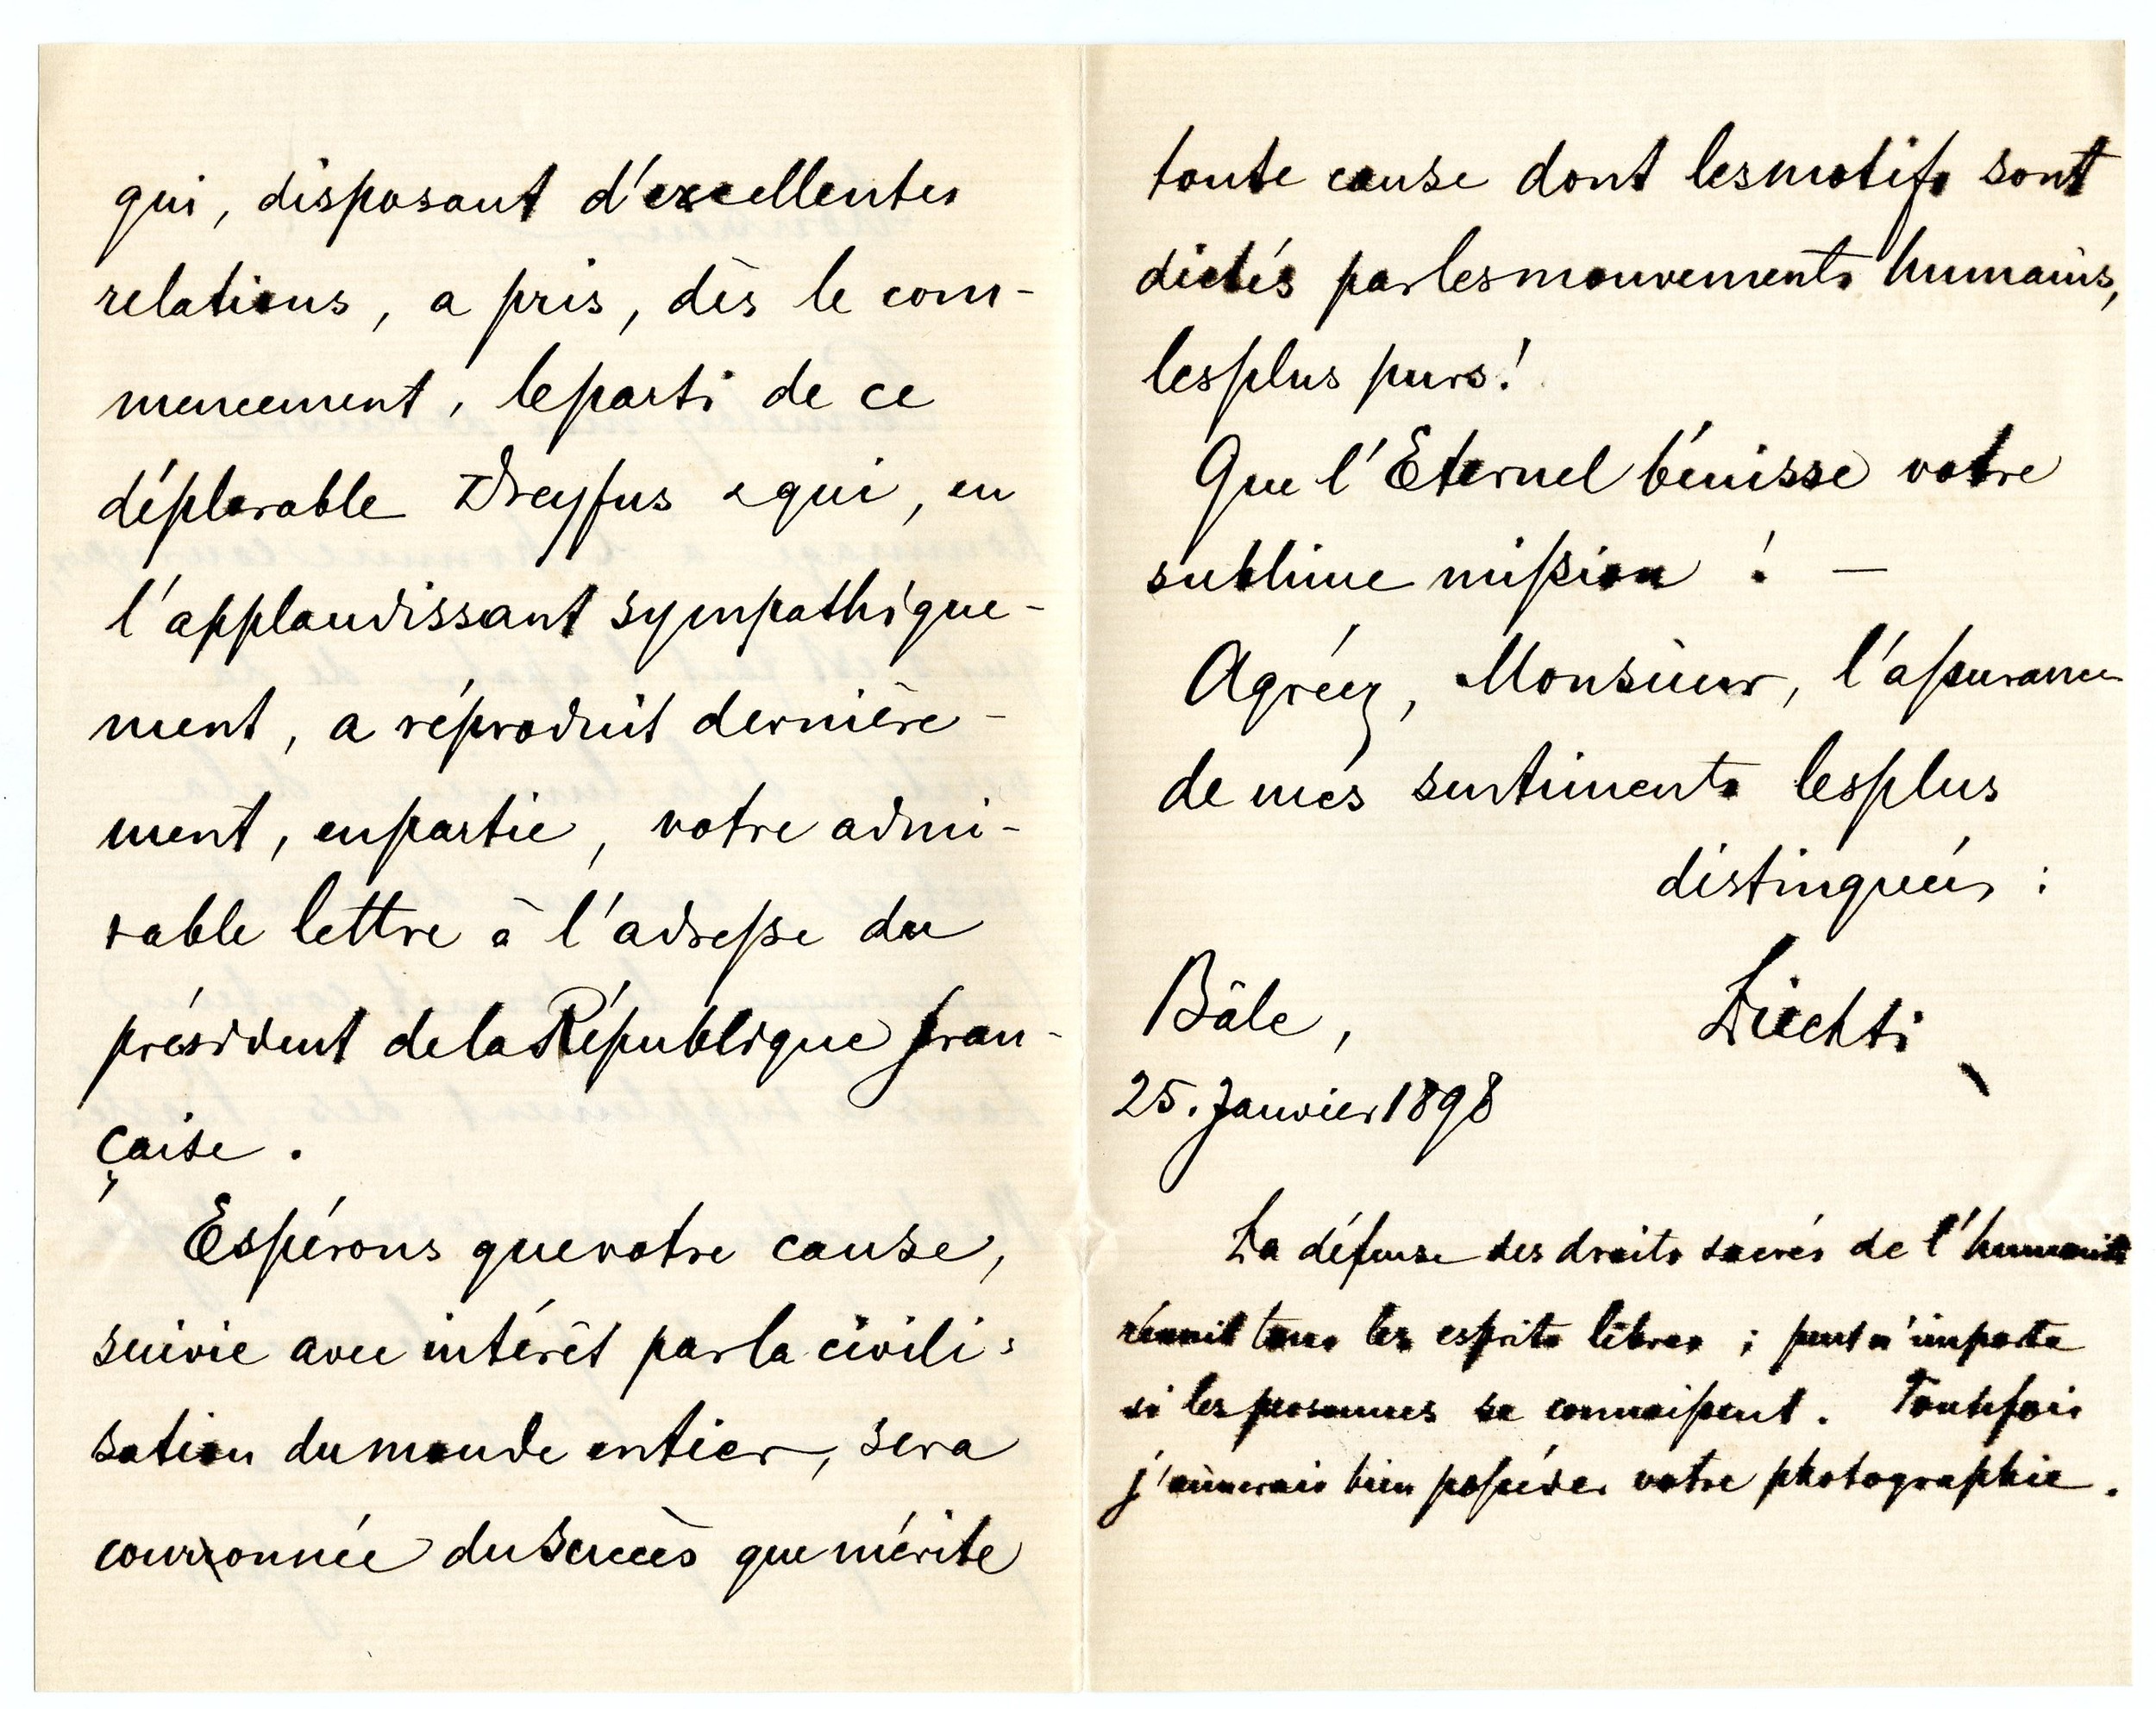 qui, disposant d'excellentes
relations, a pris, dès le com-
mencement, le parti de ce
déplorable Dreyfus & qui, en
l'applaudissant sympathique-
ment, a réproduit dernière-
ment, en partie, votre admi-
rable lettre à l'adresse du
président de la République fran-
çaise.
Espérons que votre cause,
suivie avec intérêt par la civili-
sation du monde entier, sera
couronnée du succès que mérite
toute cause dont les motifs sont
dictés par les mouvements humains,
les plus purs!
Que l'Eternel bénisse votre
sublime mission ! —
Agréez, Monsieur, l'assurance
de mes sentiments les plus
distingués :
Bâle, Liechti
25. Janvier 1898
La défense des droits sacrés de l'humanité
réunit tous les esprits libres ; peut n'importe
si les personnes se connaissent. Toutefois
j'aimerais bien posséder votre photographie.